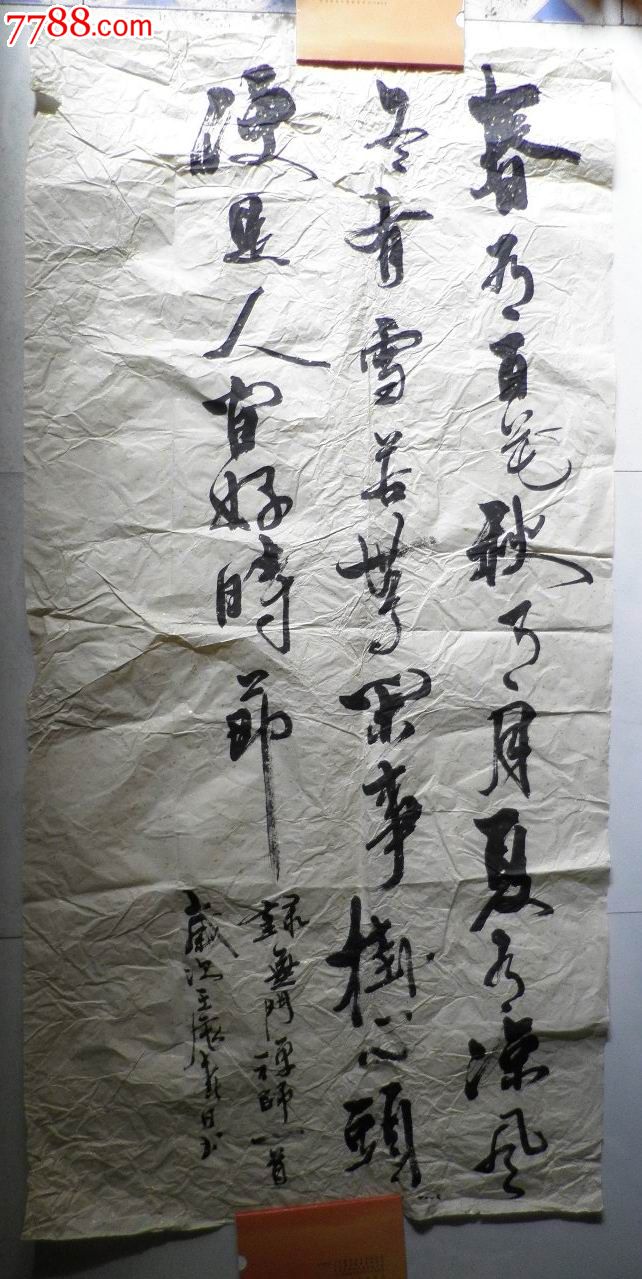 7788.com
春有百花秋有月夏有涼风
冬有雪若無閑事掛心頭
便是人間好時節
録無門禪師一首
歲次